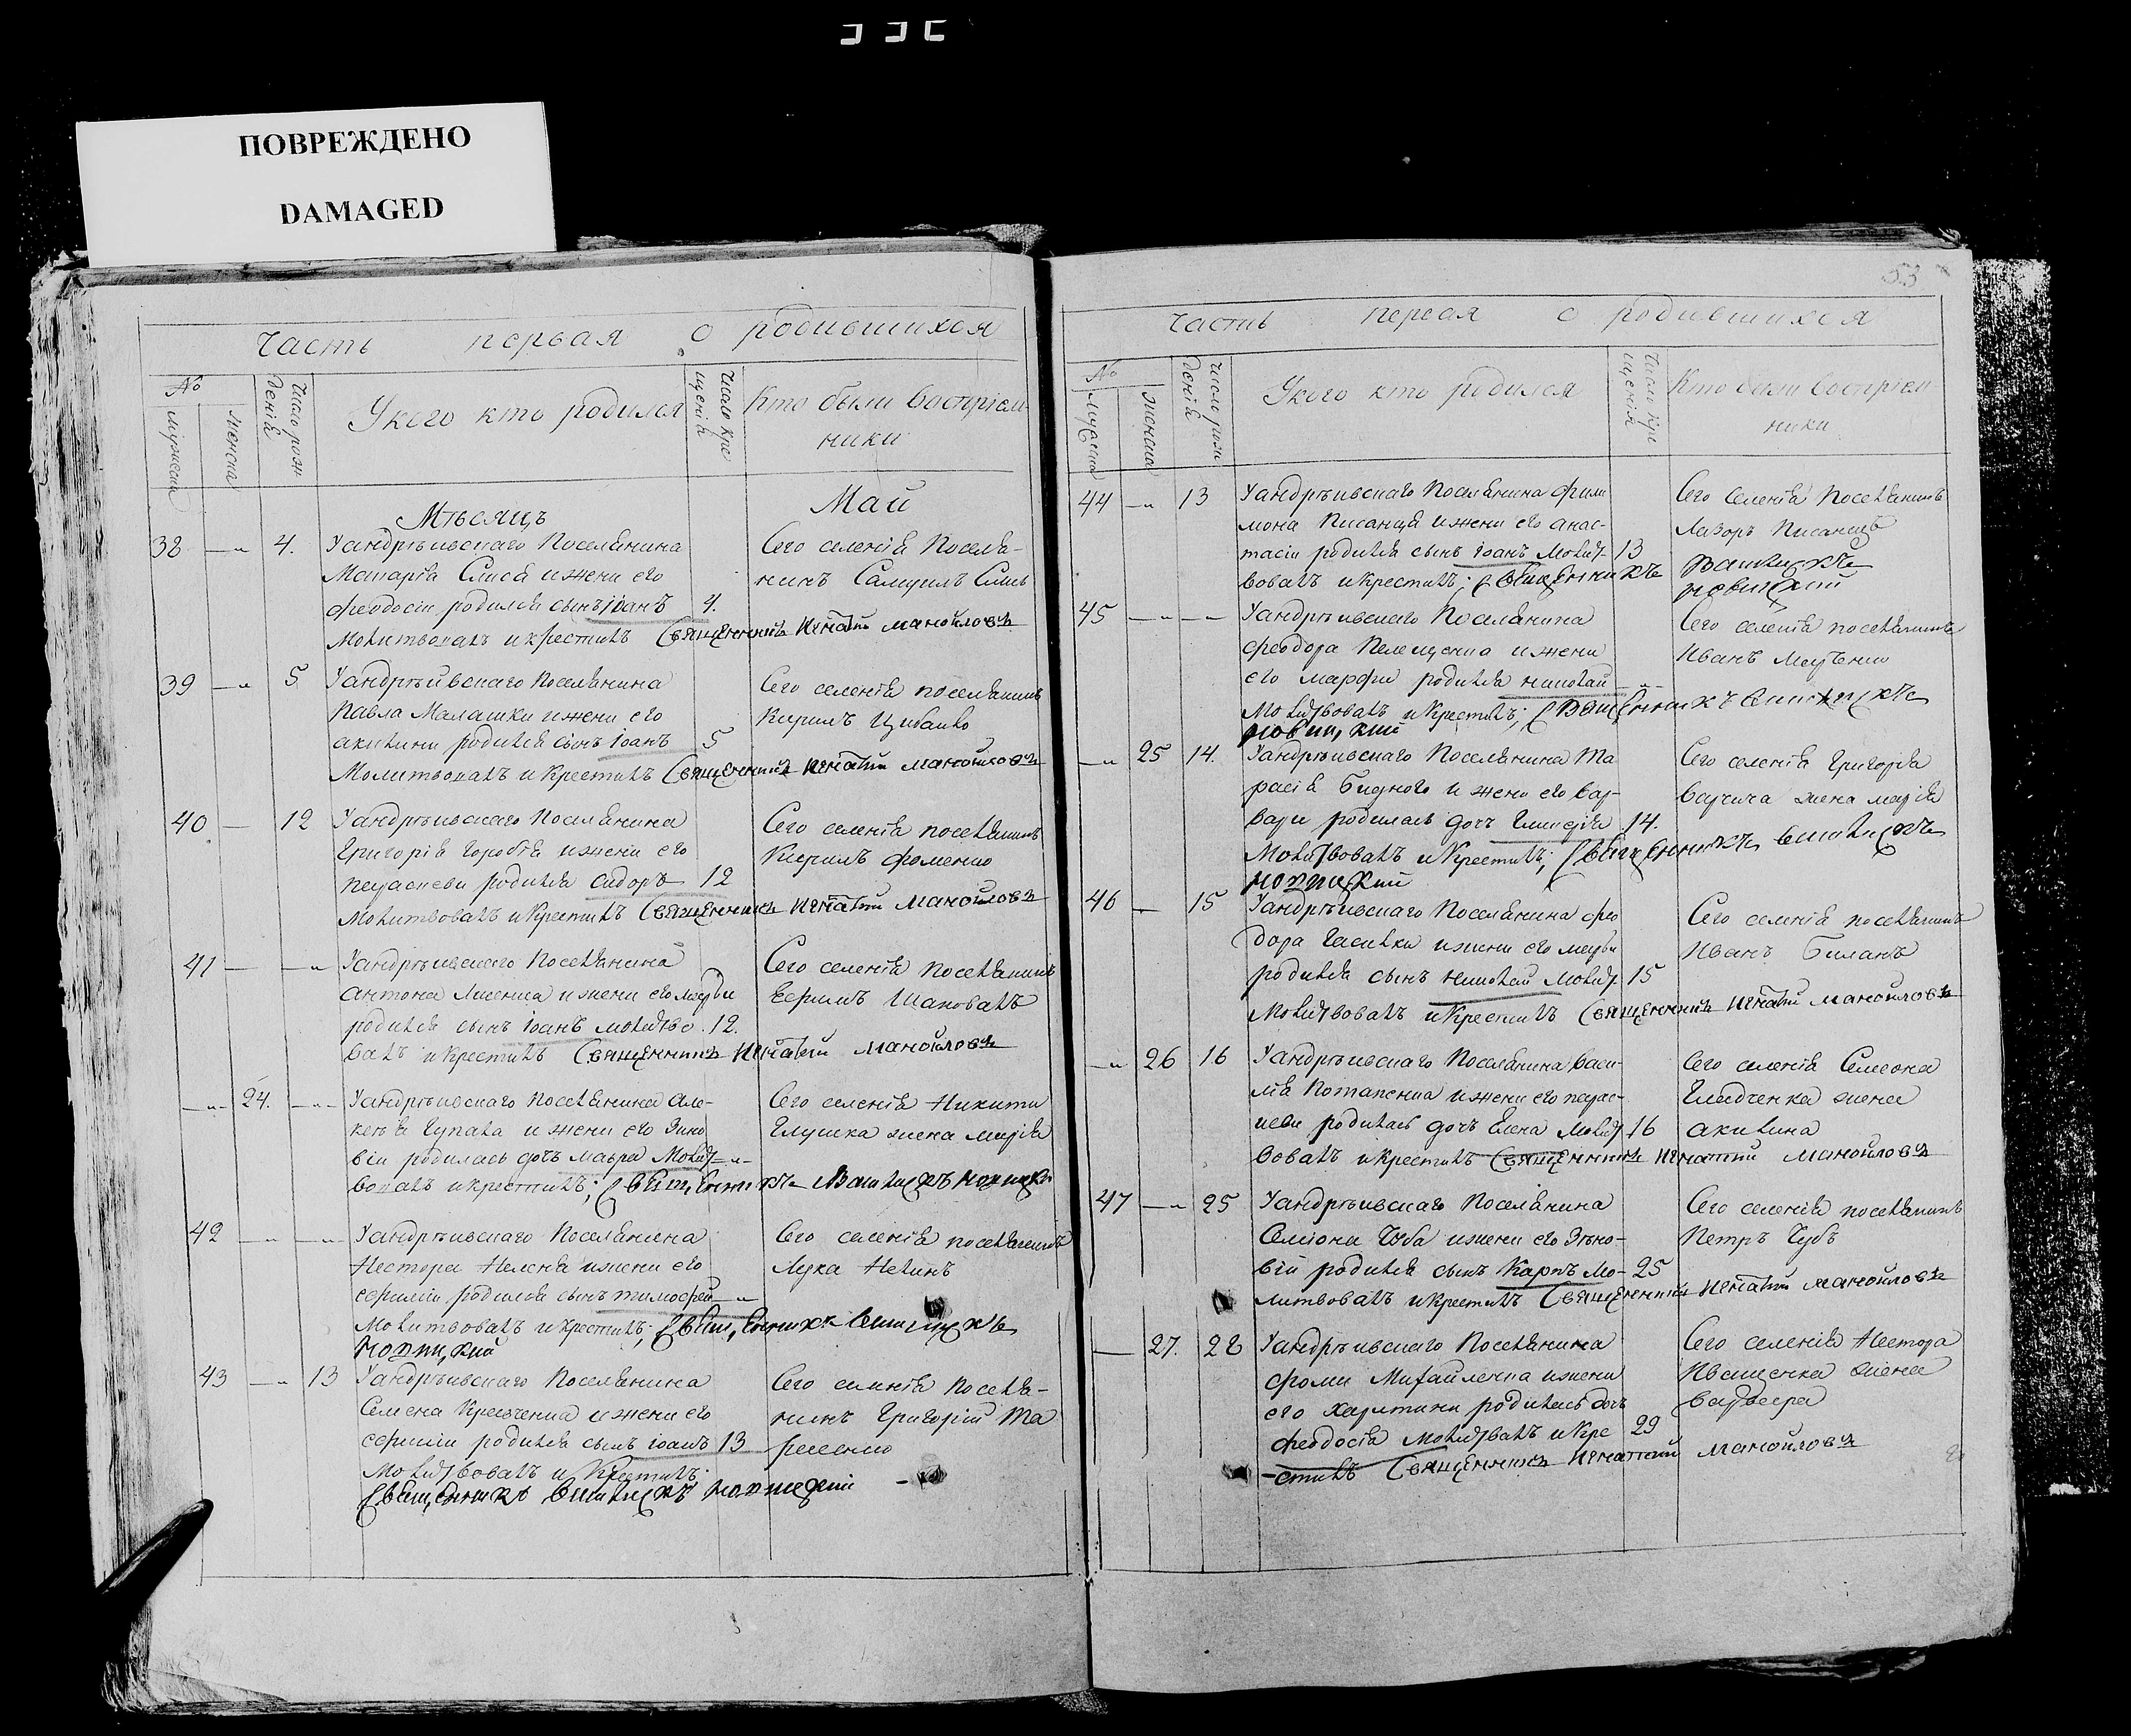 ПОВРЕЖДЕНО
DAMAGED
Часть первая о родившихся
№
мужеска
женска
Число рож
денія
У кого кто родился
Число кре
щенія
Кто были воспріем
ники
Мѣсяцъ Май
38 4.
Уандрѣивскаго Поселянина
Макаріа Слиса и жени его
феодосіи родился сынъ іоанъ 4.
Молитвовалъ и крестилъ Священникъ Игнатій Манойловъ
Сего селеніа Поселя-
нинъ Самуилъ Слись
39 5
Уандрѣйвскаго Поселянина
Павла Малашки и жени его
акилини родился сынъ іоанъ 5
Молитвовалъ и крестилъ Священникъ Игнатій Манойловъ
Сего селеніа поселянинъ
Кирилъ Цибалко
40 12
Уандрѣивскаго Поселянина
Григоріа Горобця и жени его
родился сидоръ 12
Молитвовалъ и крестилъ Священникъ Игнатій Манойловъ
Сего селеніа поселянинъ
Кирилъ Фоменко
41
Уандрѣивскаго Поселянина
антона Лисенка и жени его марфи
родился сынъ іоанъ молитво 12.
валъ и крестилъ Священникъ Игнатій Манойловъ
Сего селеніа поселянинъ
Ефимъ Шаповалъ
24.
Уандрѣивскаго Поселянина Але-
ксѣа Гупала и жени его Зино
віи родилась дочъ мавра Молит
вовалъ и крестилъ; Священникъ
Сего селеніа Никити
Глушка жена маріа
42
Уандрѣивскаго Поселянина
Нестора Нелена и жени его
ефиміи родился сынъ тимофей
Молитвовалъ и крестилъ; Священникъ
Сего селеніа поселянинъ
Лука Нелинъ
43 13
Уандрѣивскаго Поселянина
Семена Кравченка и жени его
ефиміи родился сынъ іоанъ 13
Молитвовалъ и Крестилъ
Священникъ
Сего селеніа Поселя-
нинъ Григорій Та
расенко
53
Часть первая о родившихся
№
мужеска
женска
число рож
денія
У кого кто родился
Число кре
щенія
Кто были воспріем
ники
44 13
Уандрѣивскаго Поселянина фили
мона Писанця и жени его анас-
тасіи родился сынъ іоанъ Молит- 13
вовалъ и крестилъ; Священникъ
Сего селеніа Поселянинъ
Лазоръ Писанецъ
45
Уандрѣивскаго Поселянина
феодора Пелещенка и жени
его марфи родился николай
Молитвовалъ и крестилъ; Священникъ
Сего селеніа поселянинъ
Иванъ
25 14.
Уандрѣивскаго Поселянина Та
расіа Бидного и жени его вар-
вари родилась дочъ Гликеріа 14.
Молитвовалъ и крестилъ; Священникъ
Сего селеніа Григоріа
жена маріа
46 15
Уандрѣивскаго Поселянина фео
дора и жени его марфи
родился сынъ николай Молит. 15
Молитвовалъ и крестилъ Священникъ Игнатій Манойловъ
Сего селеніа поселянинъ
Иванъ Биланъ
26 16
Уандрѣивскаго Поселянина Васи-
ліа Потапенка и жени его парас-
кеви родилась дочъ Елена Молит 16
вовалъ и крестилъ Священникъ Игнатій Манойловъ
Сего селеніа Семеона
Гладченка жена
акилина
47 25
Уандрѣивскаго Поселянина
Семіона Чуба и жени его Зѣно-
віи родился сынъ Карпъ Мо- 25
литвовалъ и крестилъ Священникъ Игнатій Манойловъ
Сего селеніа поселянинъ
Петръ Чубъ
27. 28
Уандрѣивскаго Поселянина
фоми Михайленка и жени
его харитини родилась дочъ
феодосіа молитвовалъ и кре 29
-стилъ Священникъ Игнатій Манойловъ
Сего селеніа Нестора
Иващенка жена
варвара